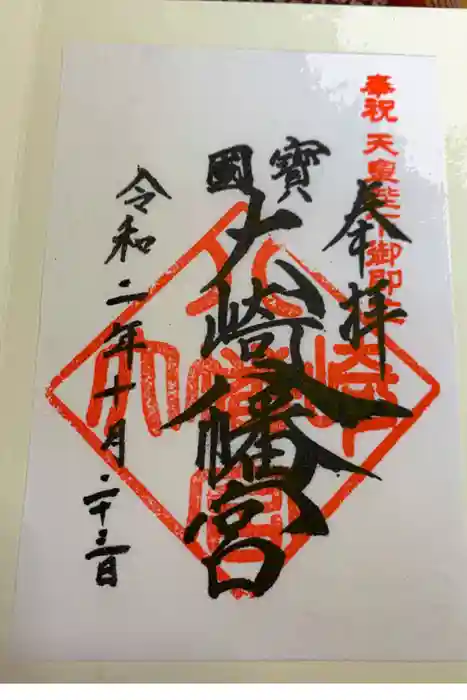 奉祝 天皇陛下御即位
奉拝
國寶
大崎八幡宮
令和二年十月二十三日
大崎八幡宮